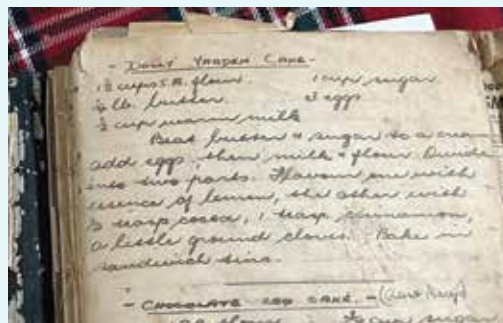 - DOLLY VARDEN CAKE -
1½ cups S.R. flour 1 cup sugar
¼ lb. butter 3 eggs
½ cup warm milk
Beat butter & sugar to a cream
add eggs, then milk & flour. Divide
into two parts. Flavour one with
essence of lemon, the other with
3 teasp cocoa, 1 teasp cinnamon,
a little ground cloves. Bake in
sandwich tins.
- CHOCOLATE CAKE - (Aunt
flour cup sugar